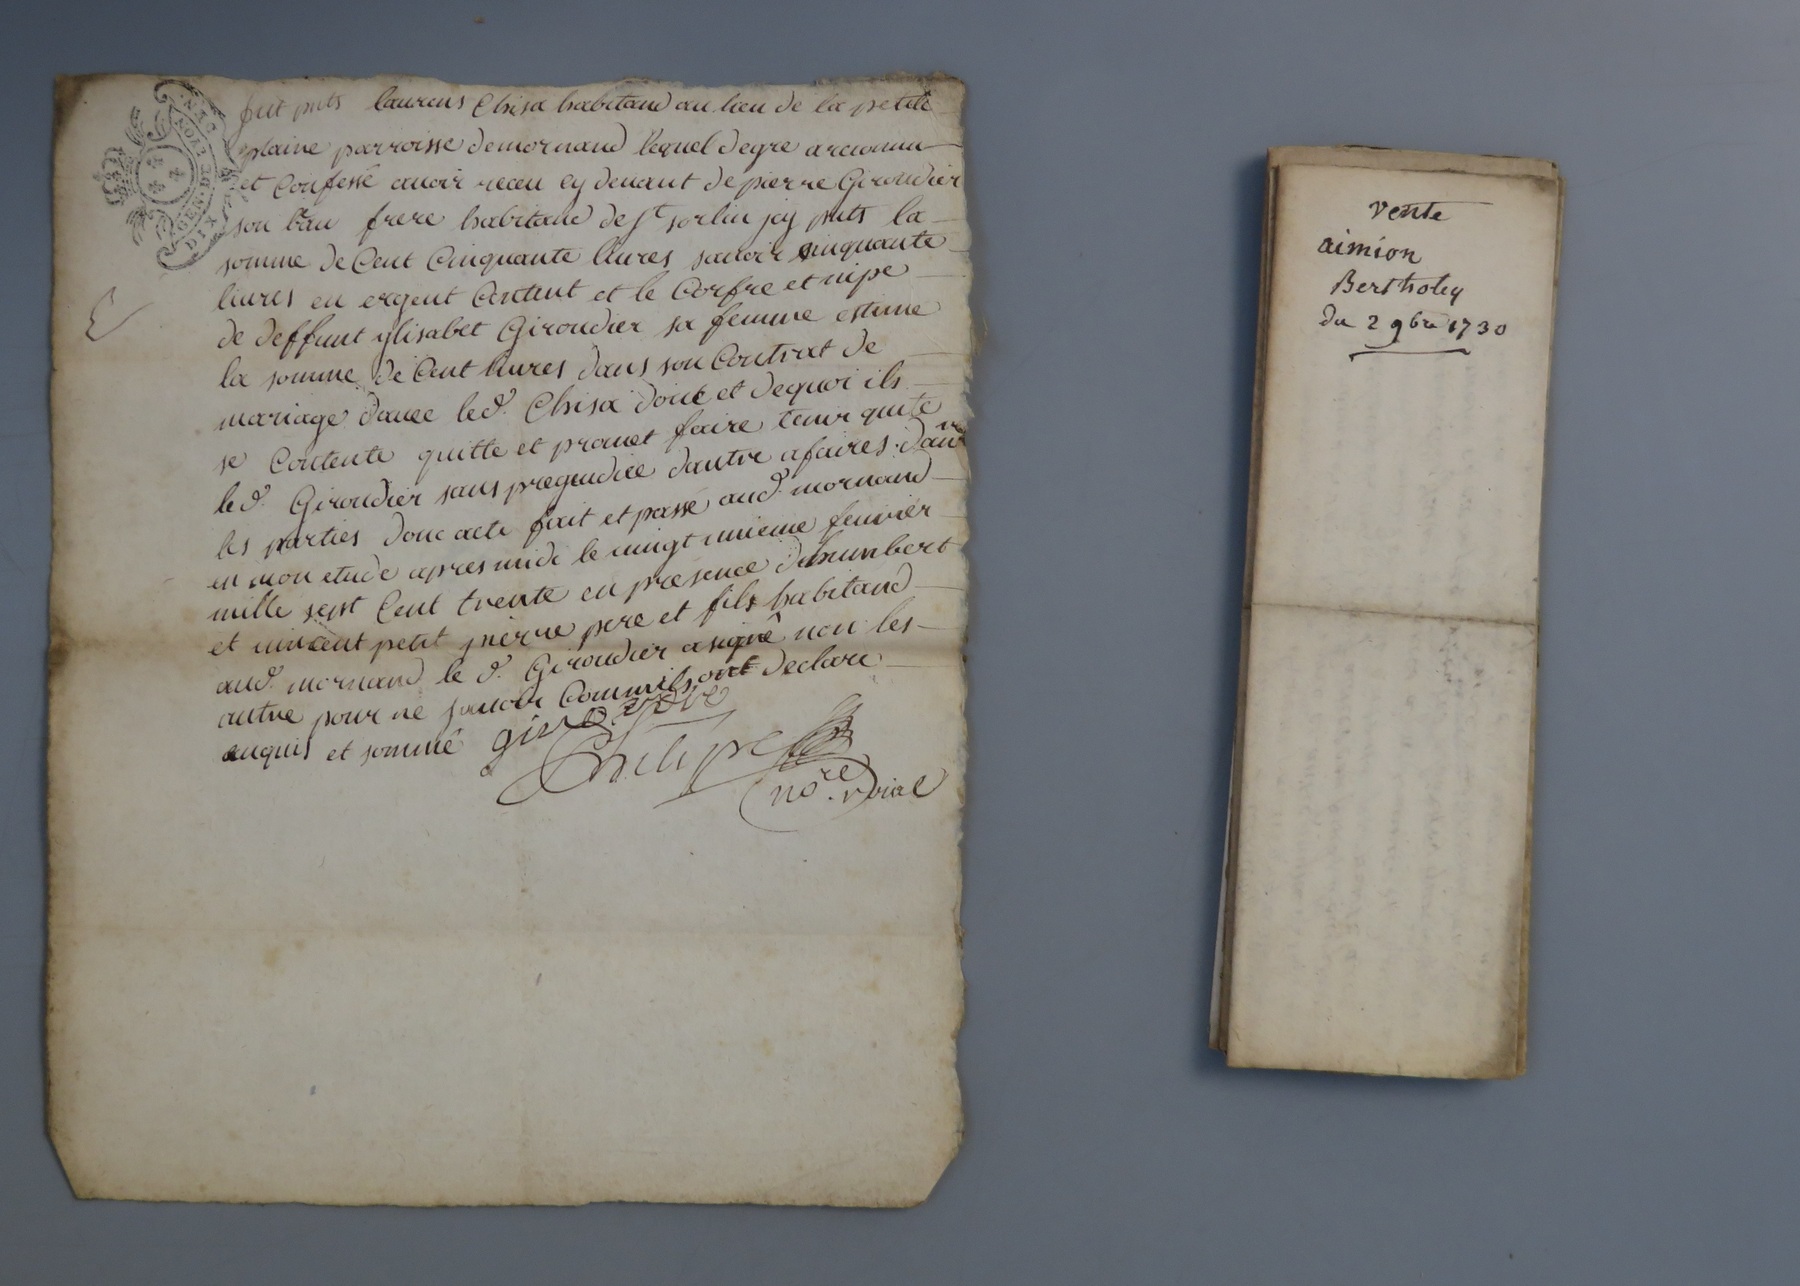 fut pnts laurens Chisa habitand au lieu de la petite
plaine parroisse de mornand lequel degre a reconnu
et Confessé avoir receu cy devant de pierre Giroudier
son bau frere habitand de st sorlin jcy pnts la
somme de Cent Cinquante livres savoir sinquante
livres en ergent Content et le Corfre et nipe
de deffunt ylisabet Giroudier sa femme estime
la somme de Cent livres dans son Contrat de
mariage davec led. Chisa dont et dequoi ils
se Contente quitte et promet faire tenir quite
led. Giroudier sans pregiudice dautre afaires
les parties donc acte fait et passé aud. mornand
en mon etude apres midi le vingt unieme fevrier
mille sept Cent trente en presence dehumbert
et vincent petit pierre pere et fils habitand
aud. mornand le d. Giroudier a signé non les
autre pour ne savoir Comm ils ont declaré
enquis et sommé
Philipe
nore. roial
GEN. DE LYON
DIX DEN.
vente
aimion
Bertholey
du 2 9bre 1730